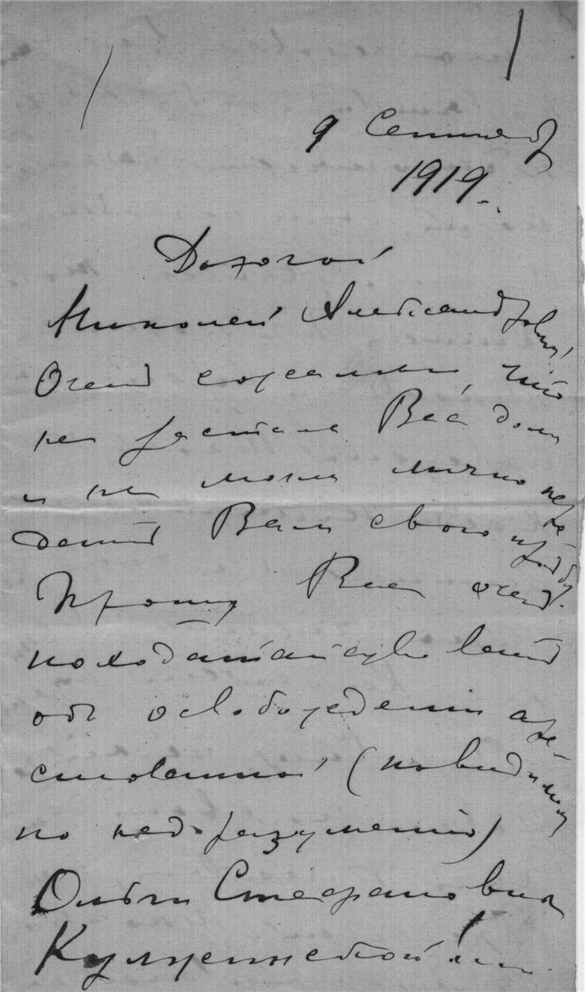 9 Сентября
1919.
Дорогой
Николай Александрович!
Очень сожалею, что
не застала Вас дома
и не могла лично пере-
дать Вам свою просьбу.
Прошу Вас очень
походатайствовать
об освобождении аре-
стованной (повидимому
по недоразумению)
Ольги Стефановны